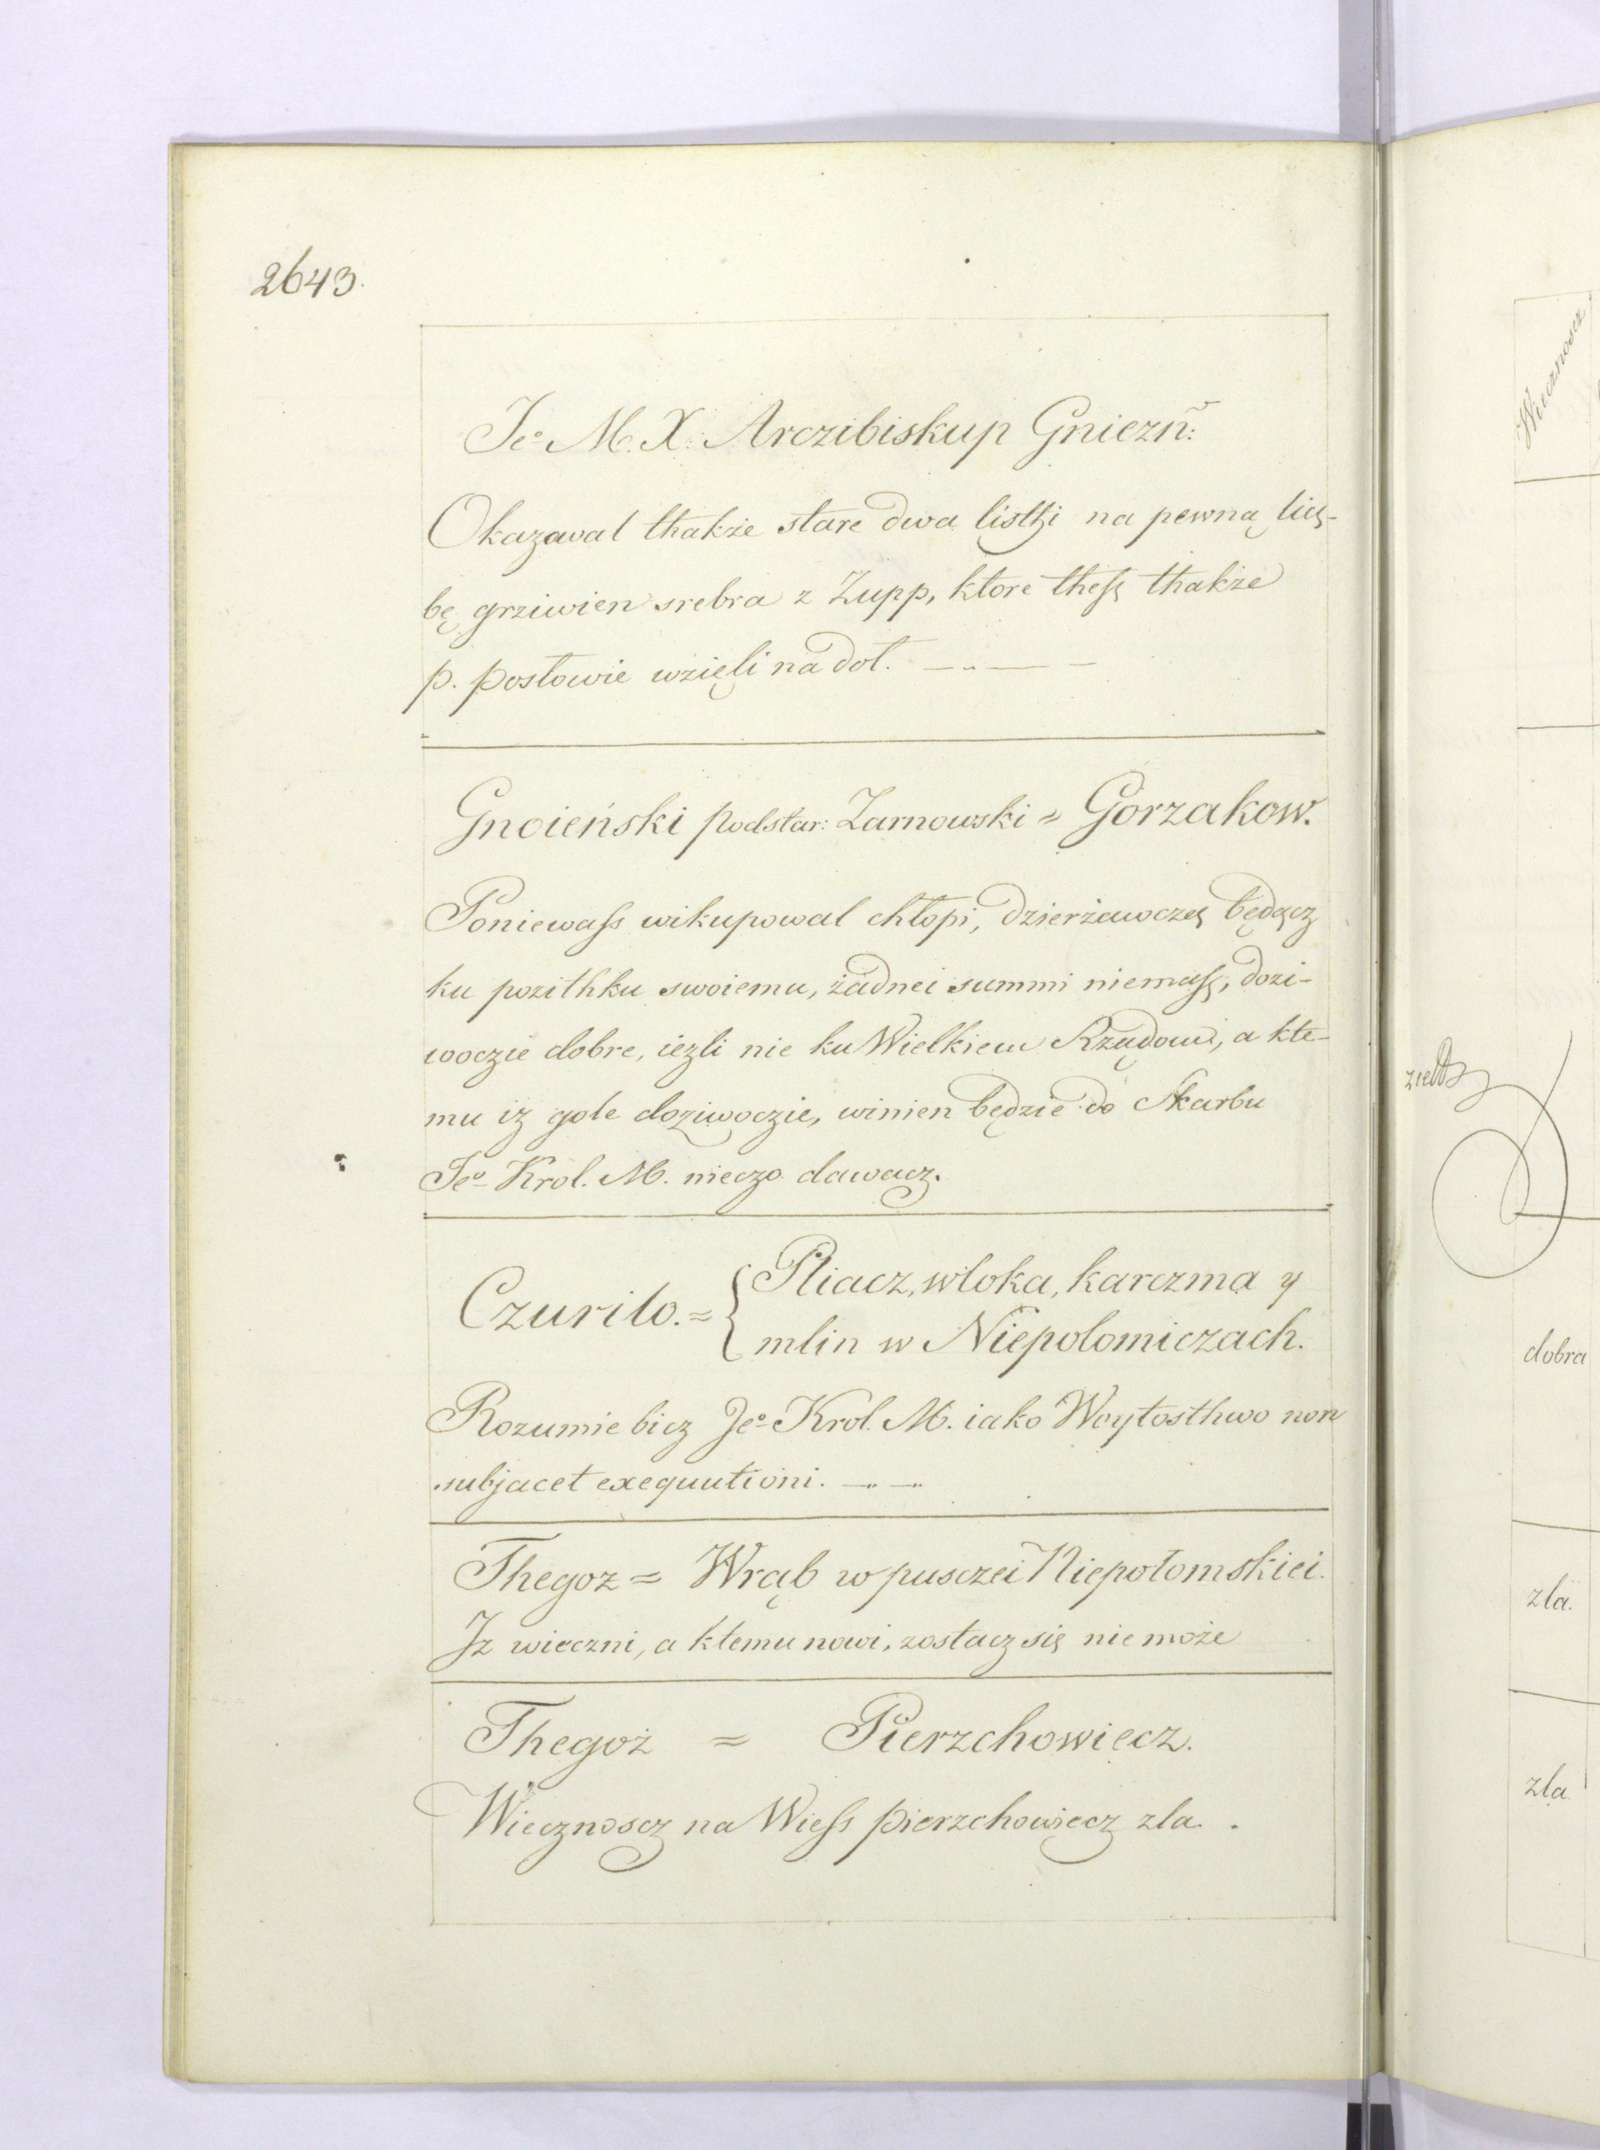 2643.
Jeº M. X. Arczibiskup Gniezñ:
Okazawal thakże stare dwa listhi na pewną licz-
bę grziwien srebra z Zupp, ktore thesz thakże
p. posłowie wzięli na dol.
Gnoieński podstar: Zarnowski = Gorzakow.
Poniewass wikupowal chłopi, dzierżawczą będącz
ku pozithku swoiemu, żadnei summi niemasz, dozi-
woczie dobre, iezli nie ku Wielkiem Rzędowi, a kte-
mu iz gole doziwoczie, winien będzie do Skarbu
Jeº Krol. M. nieczo dawacz.
Czurilo. = { Pliacz, wloka, karczma y
mlin w Niepolomiczach.
Rozumie bicz Jeº Krol. M. iako Woytosthwo non
subjacet exequutioni.
Thegoz = Wrąb w pusczei Niepołomskiei.
Jz wieczni, a ktemu nowi, zostacz się nie może
Thegoż = Pierzchowiecz.
Wiecznoscz na Wiess pierzchowiecz zla.
Wiecznoscz
dobra
zla.
zla